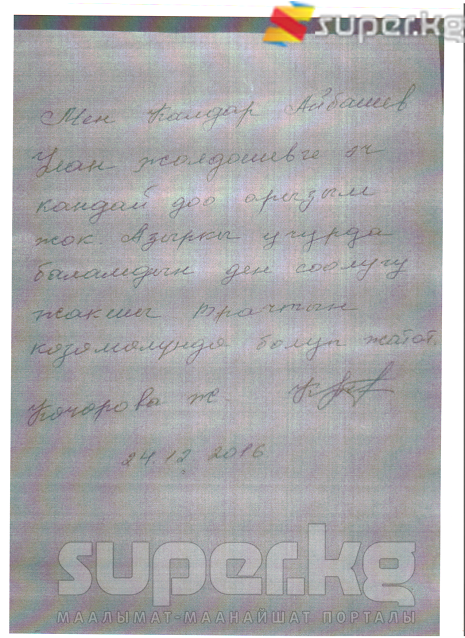 super.kg
Мен Калдар Айбашев
Улан жолдошивге эч
кандай доо арызым
жок. Азыркы учурда
баламдын ден соолугу
жакшы врачтын
козомолундо болуп жатат.
Кочорова Ж.
24.12.2016
super.kg
МААЛЫМАТ-МААНАЙШАТ ПОРТАЛЫ